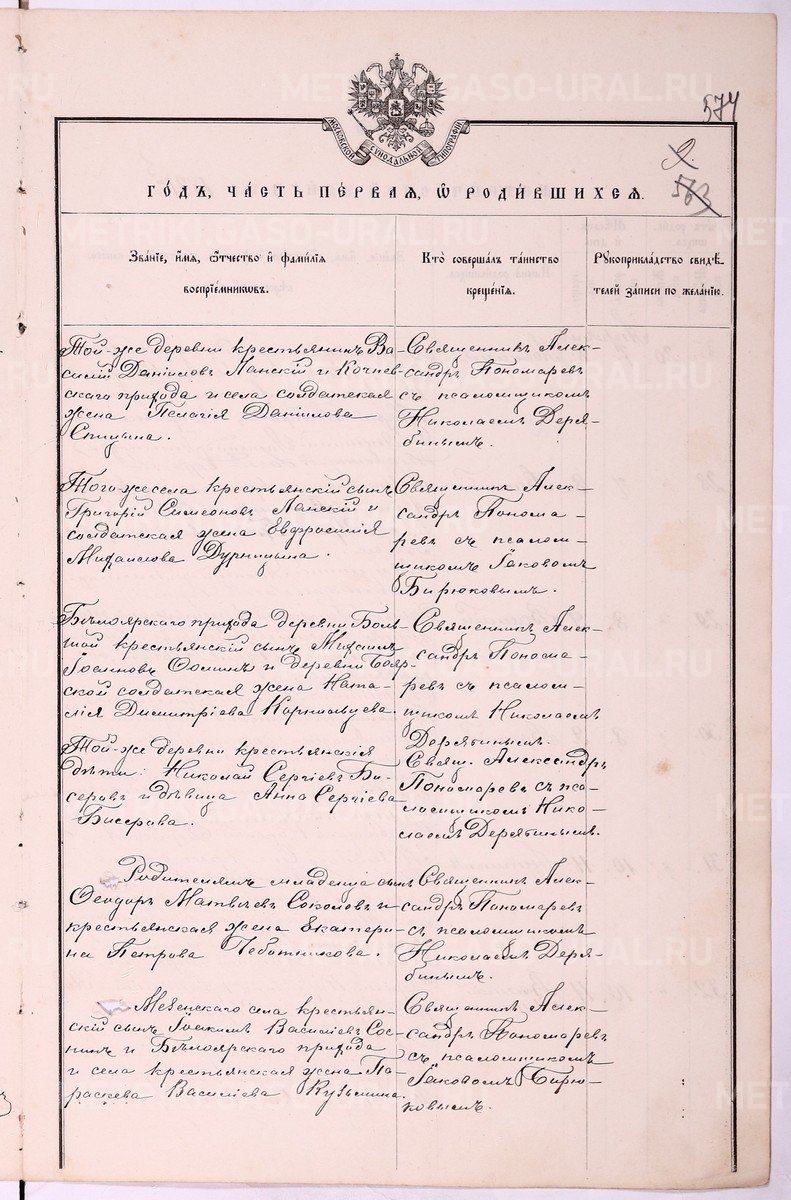 METRICI.GASO-URAL.RU
574
МОСКОВСКОЙ СѴНОДАЛЬНОЙ ТИПОГРАФІИ
563
ГО́ДЪ, ЧА́СТЬ ПЕ́РВАЯ, Ѿ РОДИ́ВШИХСЯ.
Зва́нїе, и҆́мѧ, ѻ҆́тчество и҆ фами́лїѧ
воспрїе́мниковъ.
Кто̀ соверша́лъ та́инство
креще́нїѧ.
Рꙋкоприкла́дство свидѣ́-
телей за́писи по жела́нїю.
Той-же деревни крестьянинъ Ва-
силій Даніиловъ Ланскій и Кочнев-
скаго прихода и села солдатская
жена Пелагія Даніилова
Спицына.
Священникъ Алек-
сандръ Пономаревъ
съ псаломщикомъ
Николаемъ Деря-
бинымъ.
Того-же села крестьянскій сынъ
Григорій Симеоновъ Ланскій и
солдатская жена Евфросинія
Михаилова Дурницына.
Священникъ Алек-
сандръ Понома-
ревъ съ псалом-
щикомъ Іаковомъ
Бирюковымъ.
Бѣлоярскаго прихода деревни Боль-
шой крестьянскій сынъ Михаилъ
Іоанновъ Ѳоминъ и деревни Бояр-
ской солдатская жена Ната-
лія Димитріева Кормильцева.
Священникъ Алек-
сандръ Понома-
ревъ съ псалом-
щикомъ Николаемъ
Дерябинымъ.
Той-же деревни крестьянскія
дѣти: Николай Сергіевъ Би-
серовъ и дѣвица Анна Сергіева
Бисерова.
Свящ. Александръ
Пономаревъ съ пса-
ломщикомъ Нико-
лаемъ Дерябинымъ.
Родителямъ младенца сынъ
Ѳеодоръ Матвѣевъ Соколовъ и
крестьянская жена Екатери-
на Петрова Чеботникова.
Священникъ Алек-
сандръ Пономаревъ
съ псаломщикомъ
Николаемъ Деря-
бинымъ.
Мезенскаго села крестьян-
скій сынъ Іоакимъ Василіевъ Сос-
нинъ и Бѣлоярскаго прихода
и села крестьянская жена Па-
раскева Василіева Кузьмина.
Священникъ Алек-
сандръ Пономаревъ
съ псаломщикомъ
Іаковомъ Бирю-
ковымъ.